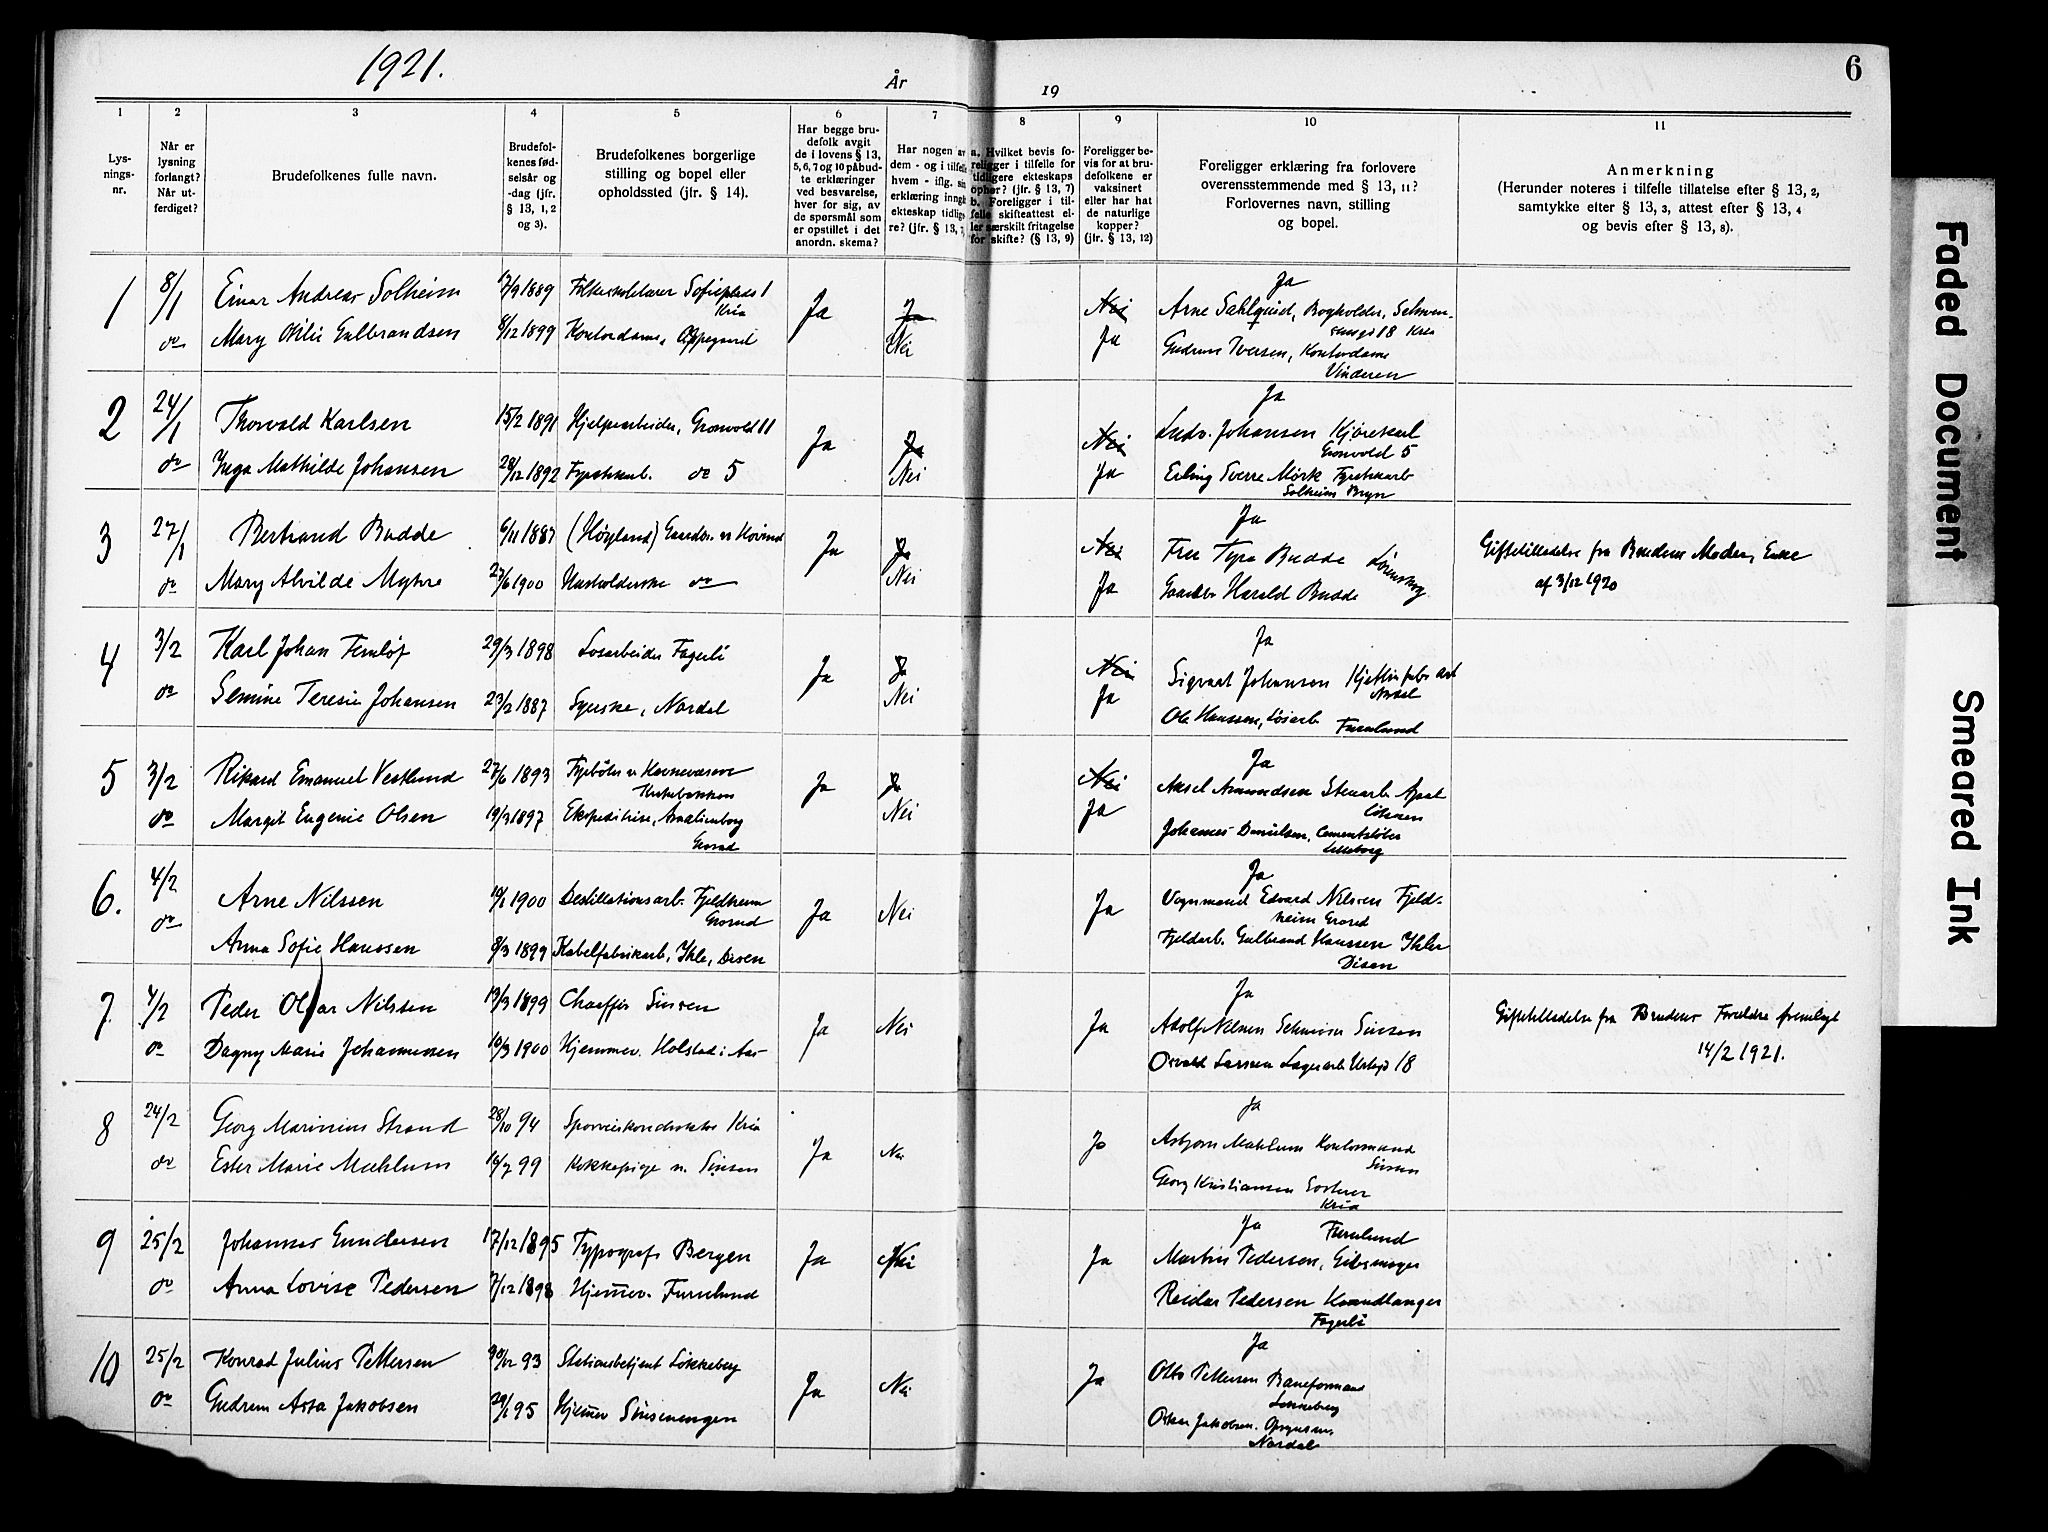 1921.
År
19
6
1
2
3
4
5
6
7
8
9
10
11
Lys-
nings-
nr.
Når er
lysning
forlangt?
Når ut-
ferdiget?
Brudefolkenes fulle navn.
Brudefol-
kenes fød-
selsår og
-dag (jfr.
§ 13, 1, 2
og 3).
Brudefolkenes borgerlige
stilling og bopel eller
opholdssted (jfr. § 14).
Har begge bru-
defolk avgit
de i lovens § 13,
5, 6, 7 og 10 påbud-
te erklæringer
ved besvarelse,
hver for sig, av
de spørsmål som
er opstillet i det
anordn. skema?
Har nogen av
dem - og i tilfelle
hvem - iflg. sin
erklæring inngå
ekteskap tidlige-
re? (jfr. § 13, 7)
a. Hvilket bevis fo-
religger i tilfelle for
tidligere ekteskaps
ophør? (jfr. § 13, 7)
b. Foreligger i til-
felle skifteattest el-
ler særskilt fritagelse
for skifte? (§ 13, 9)
Foreligger be-
vis for at bru-
defolkene er
vaksinert
eller har hat
de naturlige
kopper?
(jfr. § 13, 12)
Foreligger erklæring fra forlovere
overensstemmende med § 13, 11?
Forlovernes navn, stilling
og bopel.
Anmerkning
(Herunder noteres i tilfelle tillatelse efter § 13, 2,
samtykke efter § 13, 3, attest efter § 13, 4
og bevis efter § 13, 8).
1
8/1
do
Einar Andreas Solheim 17/9 1889 Folkeskolelærer Sofieplads 1
Kria
Mary Otilie Gulbrandsen 8/12 1899 Kontordame, Oppegaard
Ja
Nei
Nei
Ja
Ja
Arne Sahlquist, Bogholder,
18 Kria
Gudrun Iversen, Kontordame
Vinderen
2
24/1
do
Thorvald Karlsen 15/2 1891 Hjelpearbeider, Grønvold 11
Inga Mathilde Johansen 28/12 1892 Fyrstikarb. do 5
Ja
Ja
Nei
Nei
Ja
Ja
Ludv. Johansen Kjørekarl
Grønvold 5
Erling Sverre Mørk Fyrstikarb
Solheim Bryn
3
27/1
do
Bertrand Budde 6/11 1887 (Høyland) Gaardbr. v Hovind
Mary Alvilde Myhre 27/6 1900 Husholderske do
Ja
Ja
Nei
Nei
Ja
Ja
Fru Tyra Budde Lørenskog
Gaardbr Harald Budde
Giftetilladelse fra Brudens Moder, Enke
af 3/12 1920
4
3/2
do
Karl Johan Fernlöf 29/3 1898 Løsarbeider Fagerli
Semine Teresie Johansen 23/2 1887 Syerske, Nordal
Ja
Ja
Nei
Nei
Ja
Ja
Sigvart Johansen Kjettingfabr arb
Nordal
Ole Hanssen, Løsarb. Furulund
5
3/2
do
Rikard Emanuel Vestlund 27/6 1893 Fyrbøter v Havnevæsenet
Kirkebakken
Margit Eugenie Olsen 19/3 1897 Ekspeditrise, Amalienborg
Grorud
Ja
Ja
Nei
Nei
Ja
Ja
Aksel Amundsen Stenarb.
Johannes Danielsen, Cementstøber
Lilleborg
6.
4/2
do
Arne Nilssen 19/1 1900 Destillationsarb. Fjeldheim
Grorud
Anna Sofie Hanssen 8/3 1899 Kabelfabrikarb, Ihle, Disen
Ja
Nei
Ja
Ja
Vognmand Edvard Nilssen Fjeld-
heim Grorud
Fjeldarb. Gulbrand Hanssen Ihle
Disen
7
4/2
do
Peder Olfar Nilssen 13/3 1899 Chauffør Sinsen
Dagny Marie Johannessen 10/3 1900 Hjemmev. Holstad i Aas
Ja
Nei
Ja
Ja
Adolf Nilssen Sinsen
Osvald Larssen Lagerarb 18
Giftetilladelse fra Brudens Foreldre fremlagt
14/2 1921.
8
24/2
do
Georg Marinius Strand 28/10 94 Sporveiskonduktør Kria
Ester Marie Mæhlum 16/7 99 Kokkepige n. Sinsen
Ja
Nei
Ja
Ja
Asbjørn Mæhlum Kontormand
Sinsen
Georg Kristiansen
Kria
9
25/2
do
Johannes Gundersen 17/12 1895 Typograf Bergen
Anna Lovise Pedersen 7/12 1898 Hjemmev. Furulund
Ja
Nei
Ja
Ja Furulund
Martin Pedersen,
Reidar Pedersen Haandlanger
Fagerli
10
25/2
do
Konrad Julius Pettersen 93 Stationsbetjent Løkkeberg
Gudrun Asta Jakobsen 29/1 95 Hjemmev Sinsenengen
Ja
Nei
Ja
Ja
Otto Pettersen Baneformand
Oskar Jakobsen.
Nordal
Faded Document
Smeared Ink